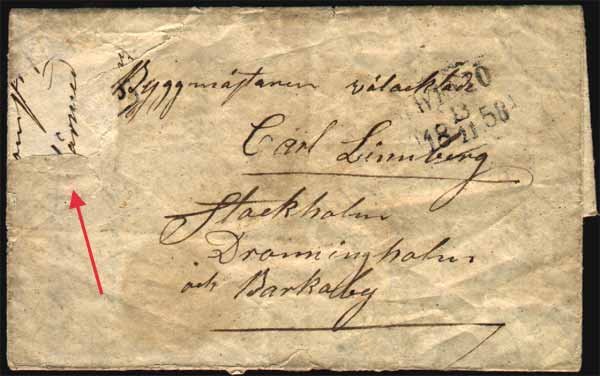 Byggmästaren välacktade
Carl Linnberg
Stockholm
Dronningholm
och Barkaby